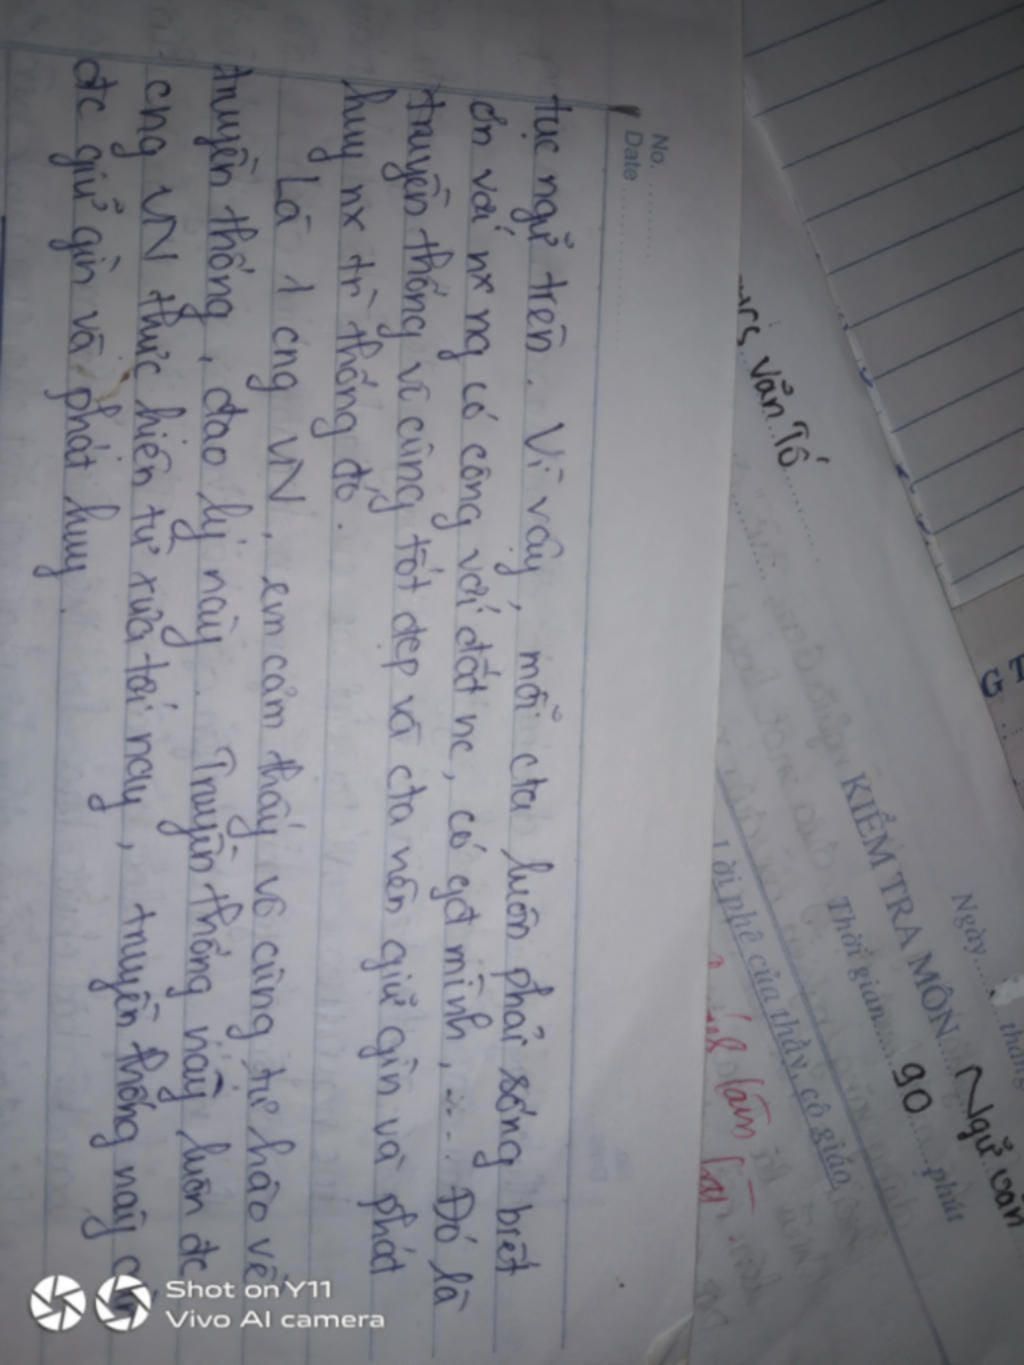 No. ............
Date ............
tục ngữ trên. Vì vậy, mỗi cta luôn phải sống biết
ơn với nx ng có công với đất nc, có gđ mình, ... Đó là
truyền thống vô cùng tốt đẹp và cta nên giữ gìn và phát
huy nx tr` thống đó.
Là 1 cng VN, em cảm thấy vô cùng tự hào về
truyền thống, đạo lý này. Truyền thống này luôn đc
cng VN thực hiện từ xưa tới nay, truyền thống này
đc giữ gìn và phát huy.
Văn Tố
Ngày...... tháng
KIỂM TRA MÔN...... Ngữ văn
Thời gian...... 90 ...... phút
Lời phê của thầy, cô giáo
làm
G T
Shot on Y11
Vivo AI camera